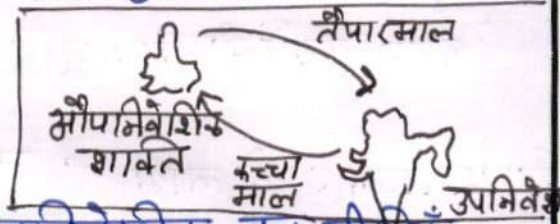 तैयारमाल
औपनिवेशिक
शक्ति
कच्चा
माल
उपनिवे